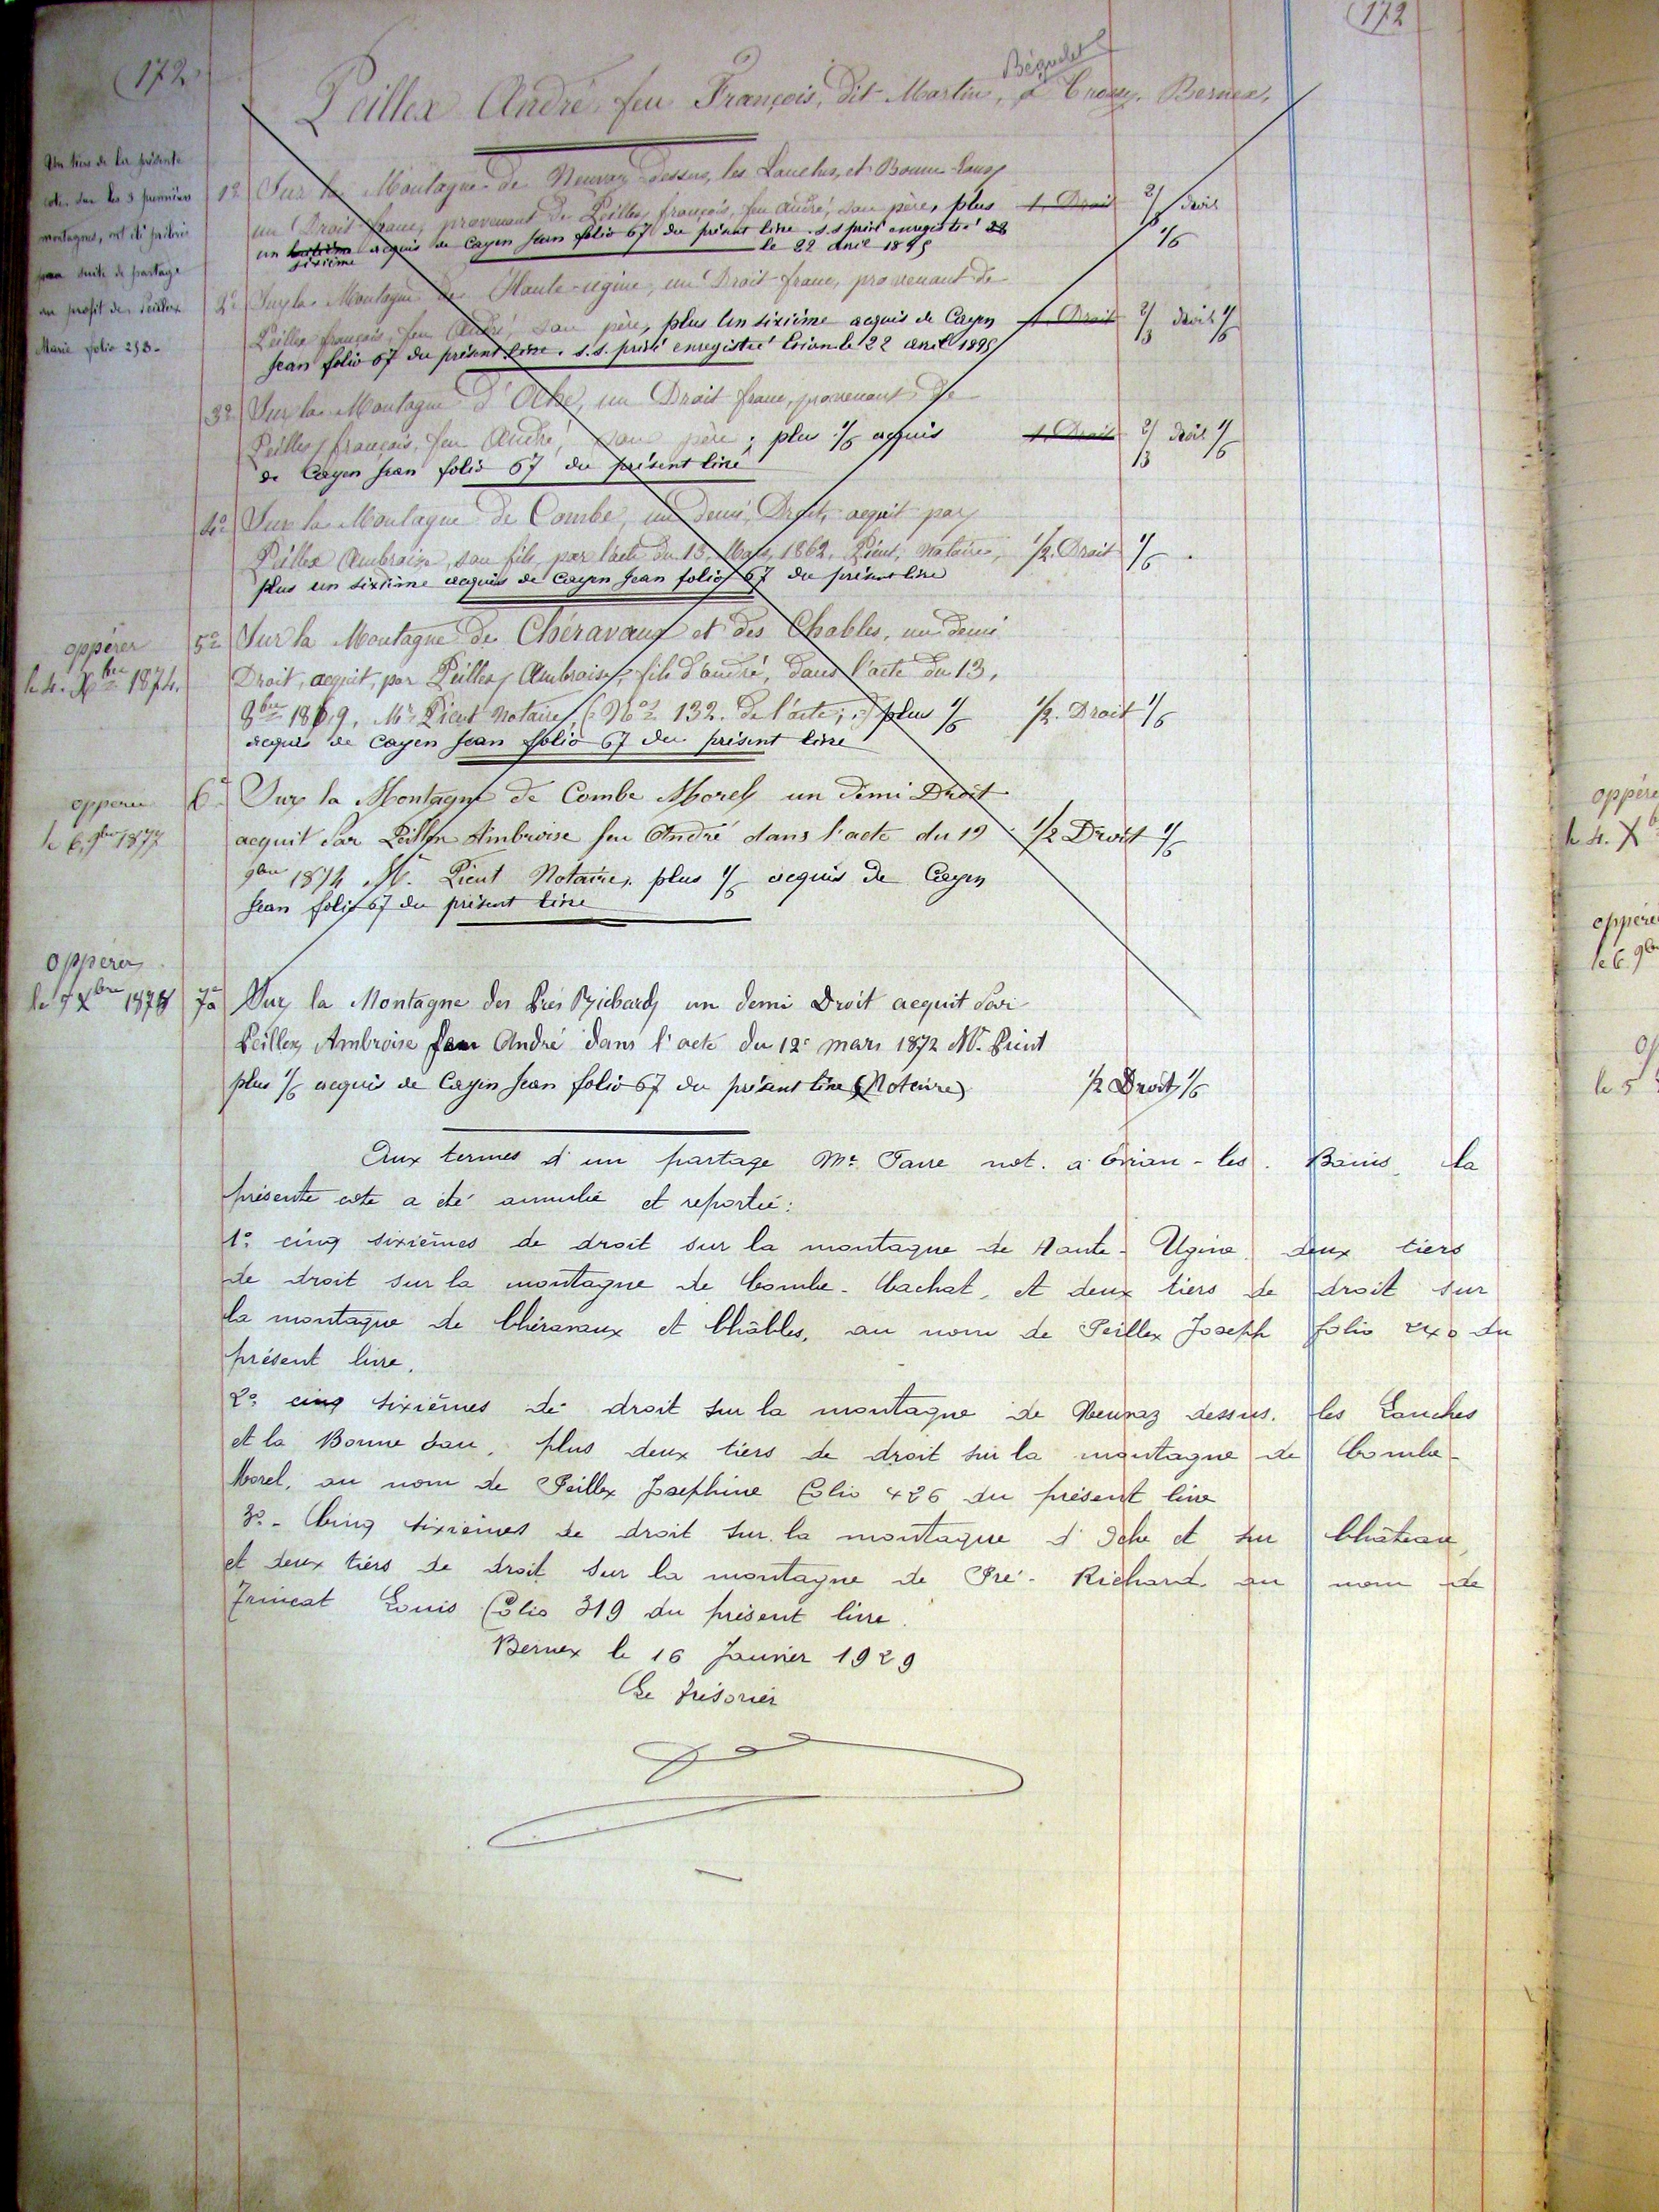 172
(172)
Béguelet
Peillex André feu François, dit Martin, à Trossy, Bernex,
Un tiers de la présente
cote sur les 3 premières
montagnes, ont été prélevés
suite de partage
au profit de Peillex
Marie folio 253.
1º Sur la Montagne de Neuvaz dessus, les Lanches, et Bonne-Eaux
un Droit franc, provenant de Peillex françois, feu André, son père, plus 1. Droit 2/3 droit
un huitième acquis de Cayen Jean folio 67 du présent livre. s.s. privé enregistré 1/6
sixième le 22 avril 1895
2º Sur la Montagne de Haute-ugine, un Droit franc, provenant de
Peillex françois, feu André, son père, plus Un sixième acquis de Cayen 1. Droit 2/3 droit 1/6
Jean folio 67 du présent livre. s.s. privé enregistré Evian le 22 avril 1895
3º Sur la Montagne d'Oche, un Droit franc, provenant de
Peillex françois, feu André, son père; plus 1/6 acquis 1. Droit 2/3 droit 1/6
de Cayen Jean folio 67 du présent livre
4º Sur la Montagne de Combe, un demi Droit, acquit par
Peillex Ambroise, son fils, par l'acte du 13. Mars, 1862, Pieut, Notaire, 1/2. Droit 1/6
plus un sixième acquis de Cayen Jean folio 67 du présent livre
oppérer
le 4. Xbre 1874.
5º Sur la Montagne de Chéravaux et des Chables, un demi
Droit, acquit, par Peillex Ambroise, fils d'andré, dans l'acte du 13,
8bre 1869, Mr. Pieut Notaire, (Nº 132. de l'acte;) plus 1/6 1/2. Droit 1/6
acquis de Cayen Jean folio 67 du présent livre
opperer
le 6. 9bre 1877
6º Sur la Montagne de Combe Morel un demi Droit
acquit Par Peillex Ambroise feu André dans l'acte du 19 1/2 Droit 1/6
9bre 1874 Mr. Pieut Notaire, plus 1/6 acquis de Cayen
Jean folio 67 du présent livre
opperer
le 5 Xbre 1878
7º Sur la Montagne des Prés Richard un demi Droit acquit Par
Peillex Ambroise feu André dans l'acte du 12 mars 1872 Mr. Pieut
plus 1/6 acquis de Cayen Jean folio 67 du présent livre (Notaire) 1/2 Droit 1/6
Aux termes d'un partage Me. Favre not. à Evian-les-Bains, la
présente cote a été annulée et reportée:
1º. cinq sixièmes de droit sur la montagne de Haute-Ugine, deux tiers
de droit sur la montagne de Combe-Cachat, et deux tiers de droit sur
la montagne de Chéravaux et Châbles, au nom de Peillex Joseph folio 240 du
présent livre.
2º. cinq sixièmes de droit sur la montagne de Neuvaz dessus. les Lanches
et la Bonne Eau, plus deux tiers de droit sur la montagne de Combe-
Morel, au nom de Peillex Josephine Folio 426 du présent livre
3º.- Cinq sixièmes de droit sur la montagne d'Oche et sur Château,
et deux tiers de droit sur la montagne de Pré-Richard au nom de
Trincat Louis Folio 319 du présent livre.
Bernex le 16 Janvier 1929
Le trésorier
oppére
le 4. X
oppére
le 6 9b
le 5